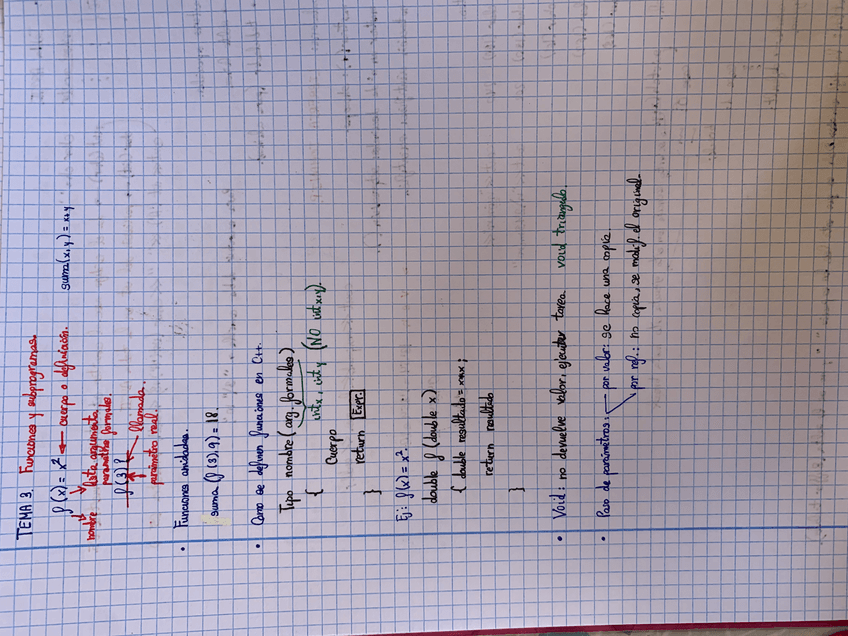 TEMA 3. Funciones y subprogramas.
f(x) = x² ← cuerpo o definición. suma(x,y) = x+y
nombre lista argumento
parametro formales.
f(3)? llamada.
parámetro real.
• Funciones anidadas.
suma (f(3),9) = 18
• Como se definen funciones en C++.
Tipo nombre (arg. formales)
int x, int y (NO int x,y)
{ Cuerpo
return Expr.
}
Ej: f(x) = x²
double f (double x)
{ double resultado = x*x ;
return resultado
}
• Void: no devuelve valor, ejecutar tarea. void triangulo.
• Paso de parámetros: por valor: se hace una copia.
por ref.: no copia, se modif. el original.